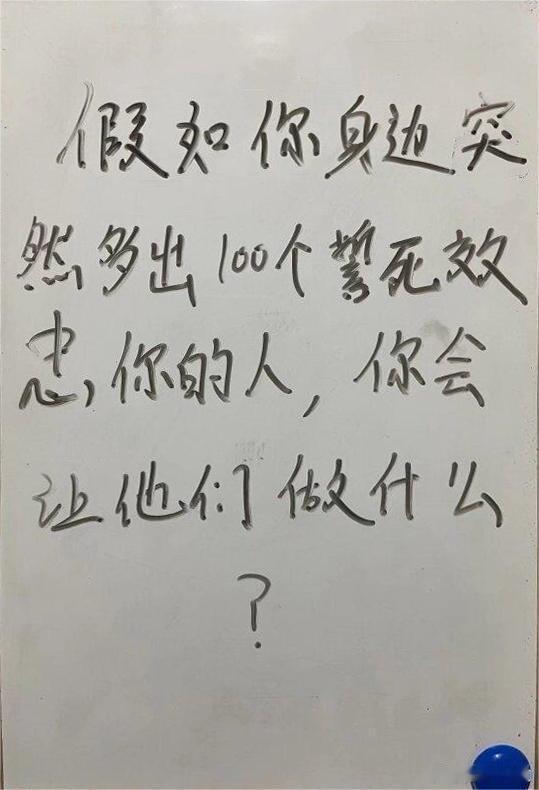 假如你身边突
然多出100个誓死效
忠你的人，你会
让他们做什么
？